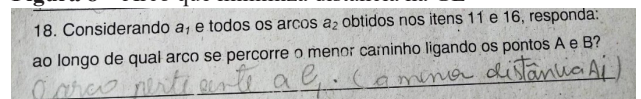 18. Considerando a₁ e todos os arcos a₂ obtidos nos itens 11 e 16, responda:
ao longo de qual arco se percorre o menor caminho ligando os pontos A e B?
O arco pertencente a C₁. (a menor distância Aj)